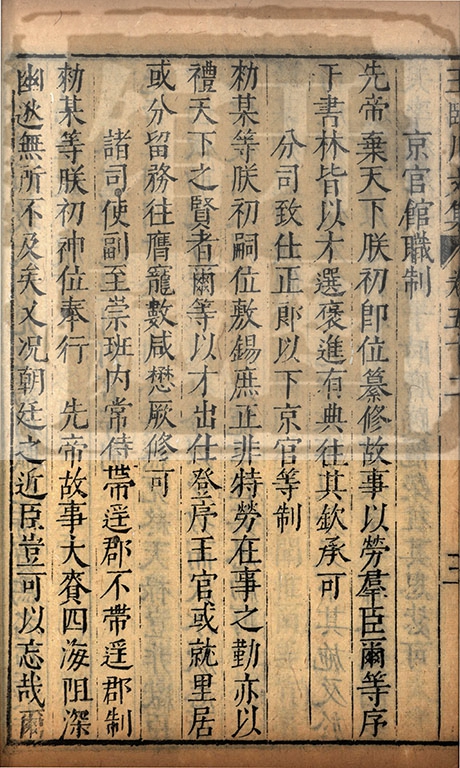 王臨川文集 卷五十二 三
京官館職制
先帝棄天下朕初即位纂修故事以勞羣臣爾等序
于書林皆以才選褒進有典往其欽承可
分司致仕正郎以下京官等制
勑某等朕初嗣位敷錫庶正非特勞在事之勤亦以
禮天下之賢者爾等以才出仕登序王官或就里居
或分留務往膺寵數咸懋厥修可
諸司使副至崇班内常侍帶遥郡不帶遥郡制
勑某等朕初神位奉行 先帝故事大賚四海阻深
幽遐無所不及矣又况朝廷之近臣豈可以忘哉爾